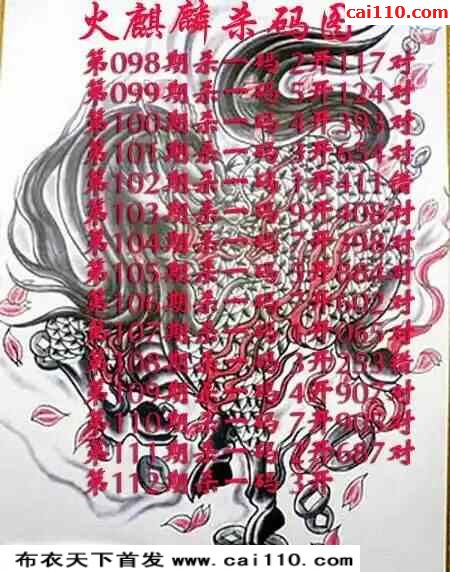 cai110.com
火麒麟杀码图
第098期杀一码2开117对
第099期杀一码5开124对
第100期杀一码4开393对
第101期杀一码3开654对
第102期杀一码1开411错
第103期杀一码9开408对
第104期杀一码7开398对
第105期杀一码 开884对
第106期杀一码 开602对
第107期杀一码 开065对
第108期杀一码3开253错
第109期杀一码4开907对
第110期杀一码7开90 对
第111期杀一码 开687对
第112期杀一码3开
布衣天下首发 www.cai110.com